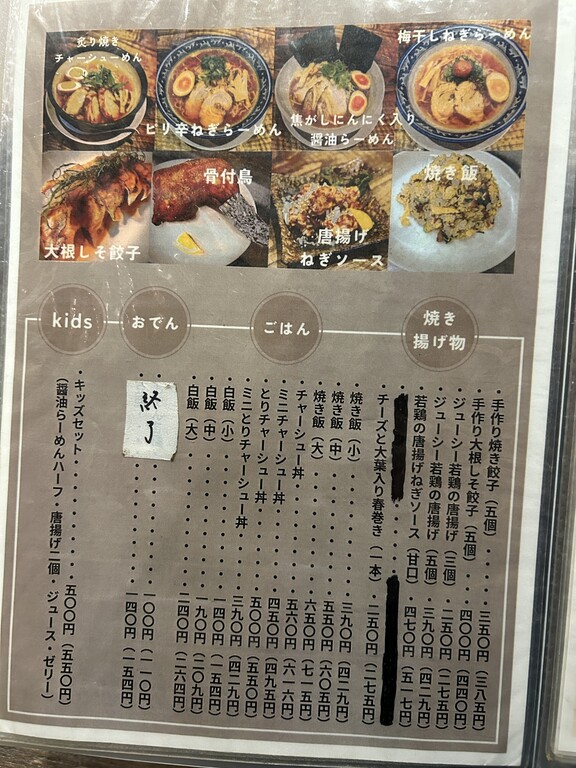 炙り焼き
チャーシューめん
ピリ辛ねぎらーめん
焦がしにんにく入り
醤油らーめん
梅干しねぎらーめん
大根しそ餃子
骨付鳥
唐揚げ
ねぎソース
焼き飯
焼き
揚げ物
手作り焼き餃子（五個）・・・・三五〇円（三八五円）
手作り大根しそ餃子（五個）・・四〇〇円（四四〇円）
ジューシー若鶏の唐揚げ（三個）・二五〇円（二七五円）
ジューシー若鶏の唐揚げ（五個）・三九〇円（四二九円）
若鶏の唐揚げねぎソース（甘口）・四七〇円（五一七円）
チーズと大葉入り春巻き（一本）・二五〇円（二七五円）
ごはん
焼き飯（小）・・・・・・・三九〇円（四二九円）
焼き飯（中）・・・・・・・五五〇円（六〇五円）
焼き飯（大）・・・・・・・六五〇円（七一五円）
チャーシュー丼・・・・・・五六〇円（六一六円）
ミニチャーシュー丼・・・・四五〇円（四九五円）
とりチャーシュー丼・・・・五〇〇円（五五〇円）
ミニとりチャーシュー丼・・三九〇円（四二九円）
白飯（小）・・・・・・・・一四〇円（一五四円）
白飯（中）・・・・・・・・一九〇円（二〇九円）
白飯（大）・・・・・・・・二四〇円（二六四円）
おでん
終了
・・・・・・・一〇〇円（一一〇円）
・・・・・・・一四〇円（一五四円）
kids
・キッズセット・・・・・・・・五〇〇円（五五〇円）
（醤油らーめんハーフ・唐揚げ二個・ジュース・ゼリー）